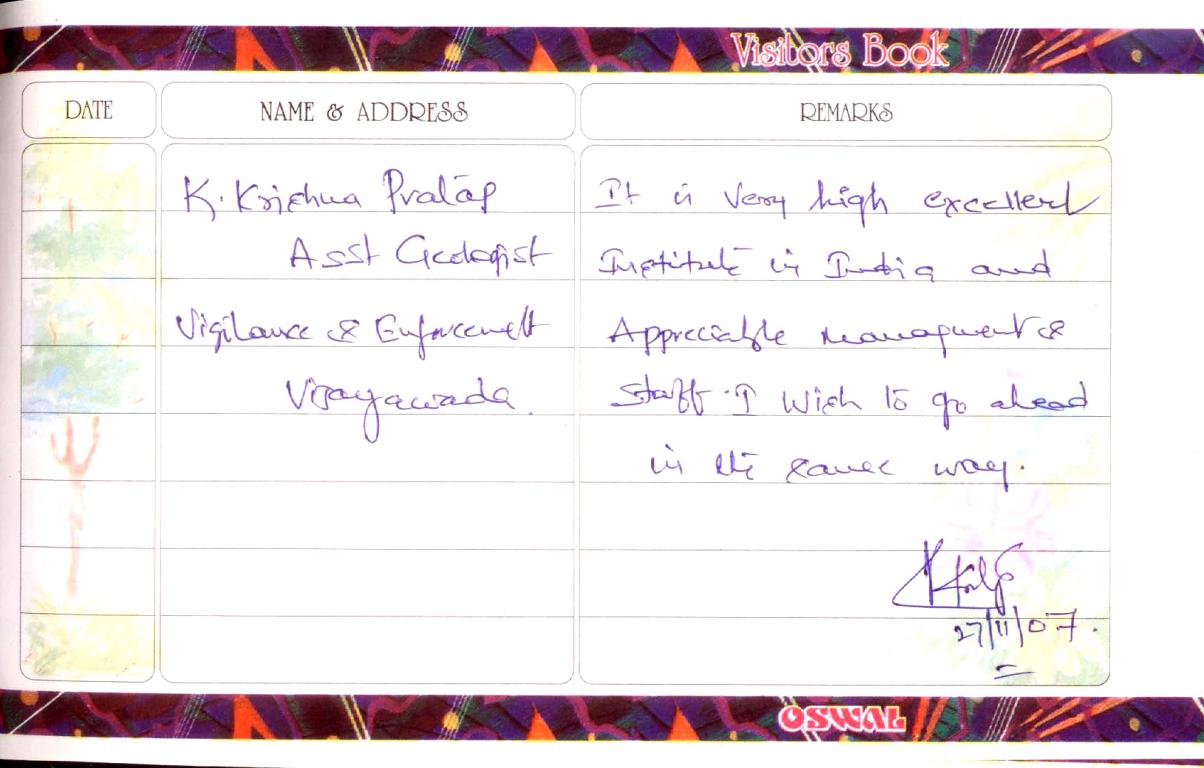 Visitors Book
DATE
NAME & ADDRESS
REMARKS
K. Krishna Pratap
Asst Geologist
Vigilance & Enforcement
Vijayawada.
It is Very high excellent
Institute in India and
Appreciable management &
staff. I wish to go ahead
in the same way.
27/11/07.
OSWAL